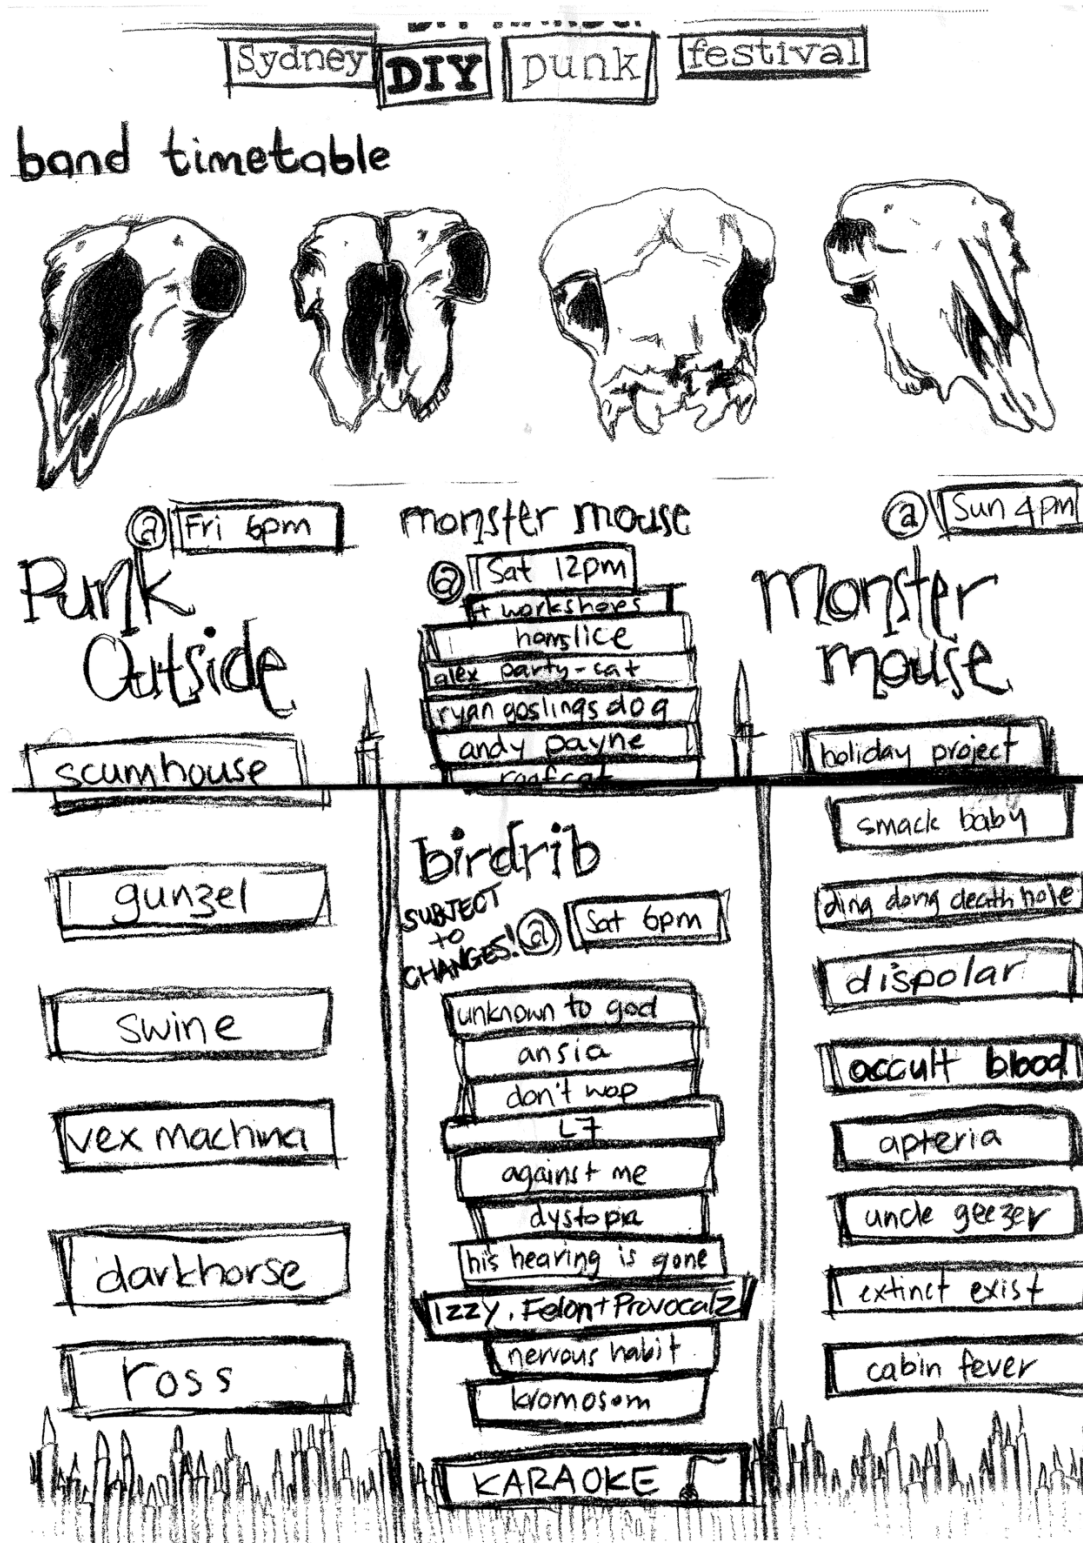 Sydney DIY punk festival
band timetable
@ Fri 6pm
Punk
Outside
scumhouse
gunzel
swine
vex machina
darkhorse
ross
monster mouse
@ Sat 12pm
+ workshops
hamslice
alex party-cat
ryan goslings dog
andy payne
roofcat
birdrib
SUBJECT
TO
CHANGES!
@ Sat 6pm
unknown to god
ansia
don't wop
L7
against me
dystopia
his hearing is gone
Izzy, Felon + Provocalz
nervous habit
kromosom
KARAOKE
@ Sun 4pm
monster
mouse
holiday project
smack baby
ding dong death hole
dispolar
occult blood
apteria
uncle geezer
extinct exist
cabin fever